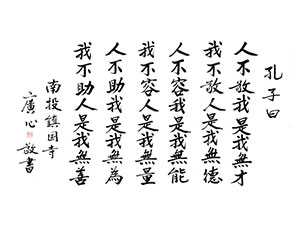 孔子曰
人不敬我是我無才
我不敬人是我無德
人不容我是我無能
我不容人是我無量
人不助我是我無為
我不助人是我無善
南投鎮国寺
廣心敬書